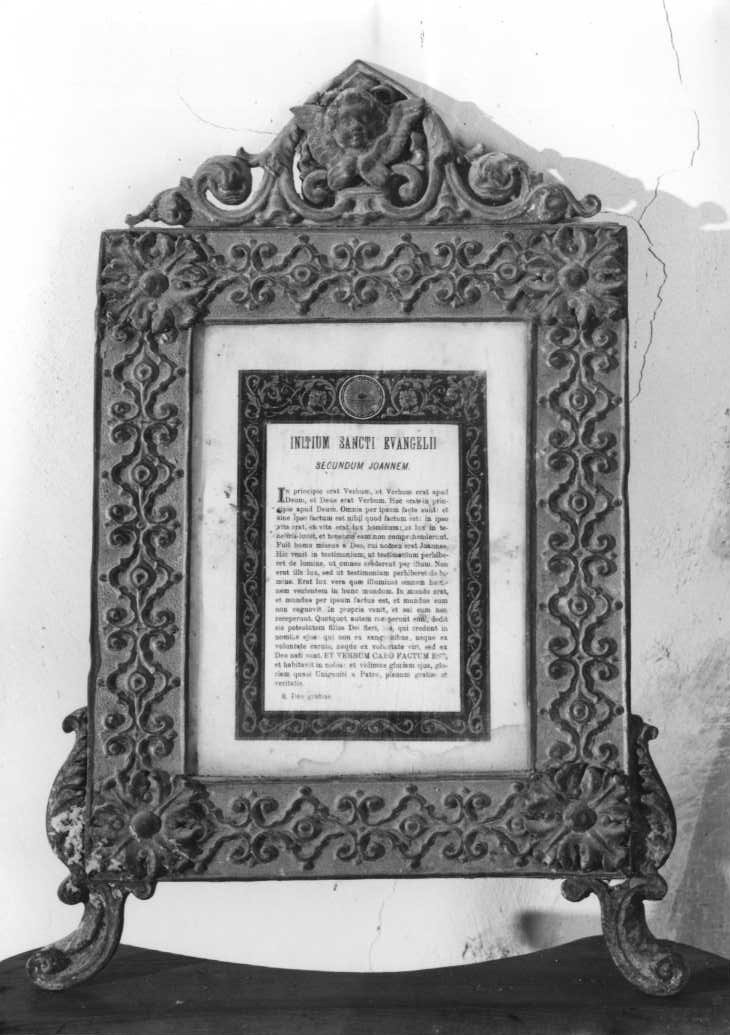 INITIUM SANCTI EVANGELII
SECUNDUM JOANNEM.
In principio erat Verbum, et Verbum erat apud
Deum, et Deus erat Verbum. Hoc erat in prin-
cipio apud Deum. Omnia per ipsum facta sunt: et
sine ipso factum est nihil quod factum est: in ipso
vita erat, et vita erat lux hominum: et lux in te-
nebris lucet, et tenebrae eam non comprehenderunt.
Fuit homo missus a Deo, cui nomen erat Joannes.
Hic venit in testimonium, ut testimonium perhibe-
ret de lumine, ut omnes crederent per illum. Non
erat ille lux, sed ut testimonium perhiberet de lu-
mine. Erat lux vera quae illuminat omnem homi-
nem venientem in hunc mundum. In mundo erat,
et mundus per ipsum factus est, et mundus eum
non cognovit. In propria venit, et sui eum non
receperunt. Quotquot autem receperunt eum, dedit
eis potestatem filios Dei fieri, his, qui credunt in
nomine ejus: qui non ex sanguinibus, neque ex
voluntate carnis, neque ex voluntate viri, sed ex
Deo nati sunt. ET VERBUM CARO FACTUM EST,
et habitavit in nobis: et vidimus gloriam ejus, glo-
riam quasi Unigeniti a Patre, plenum gratiae et
veritatis.
Deo gratias.